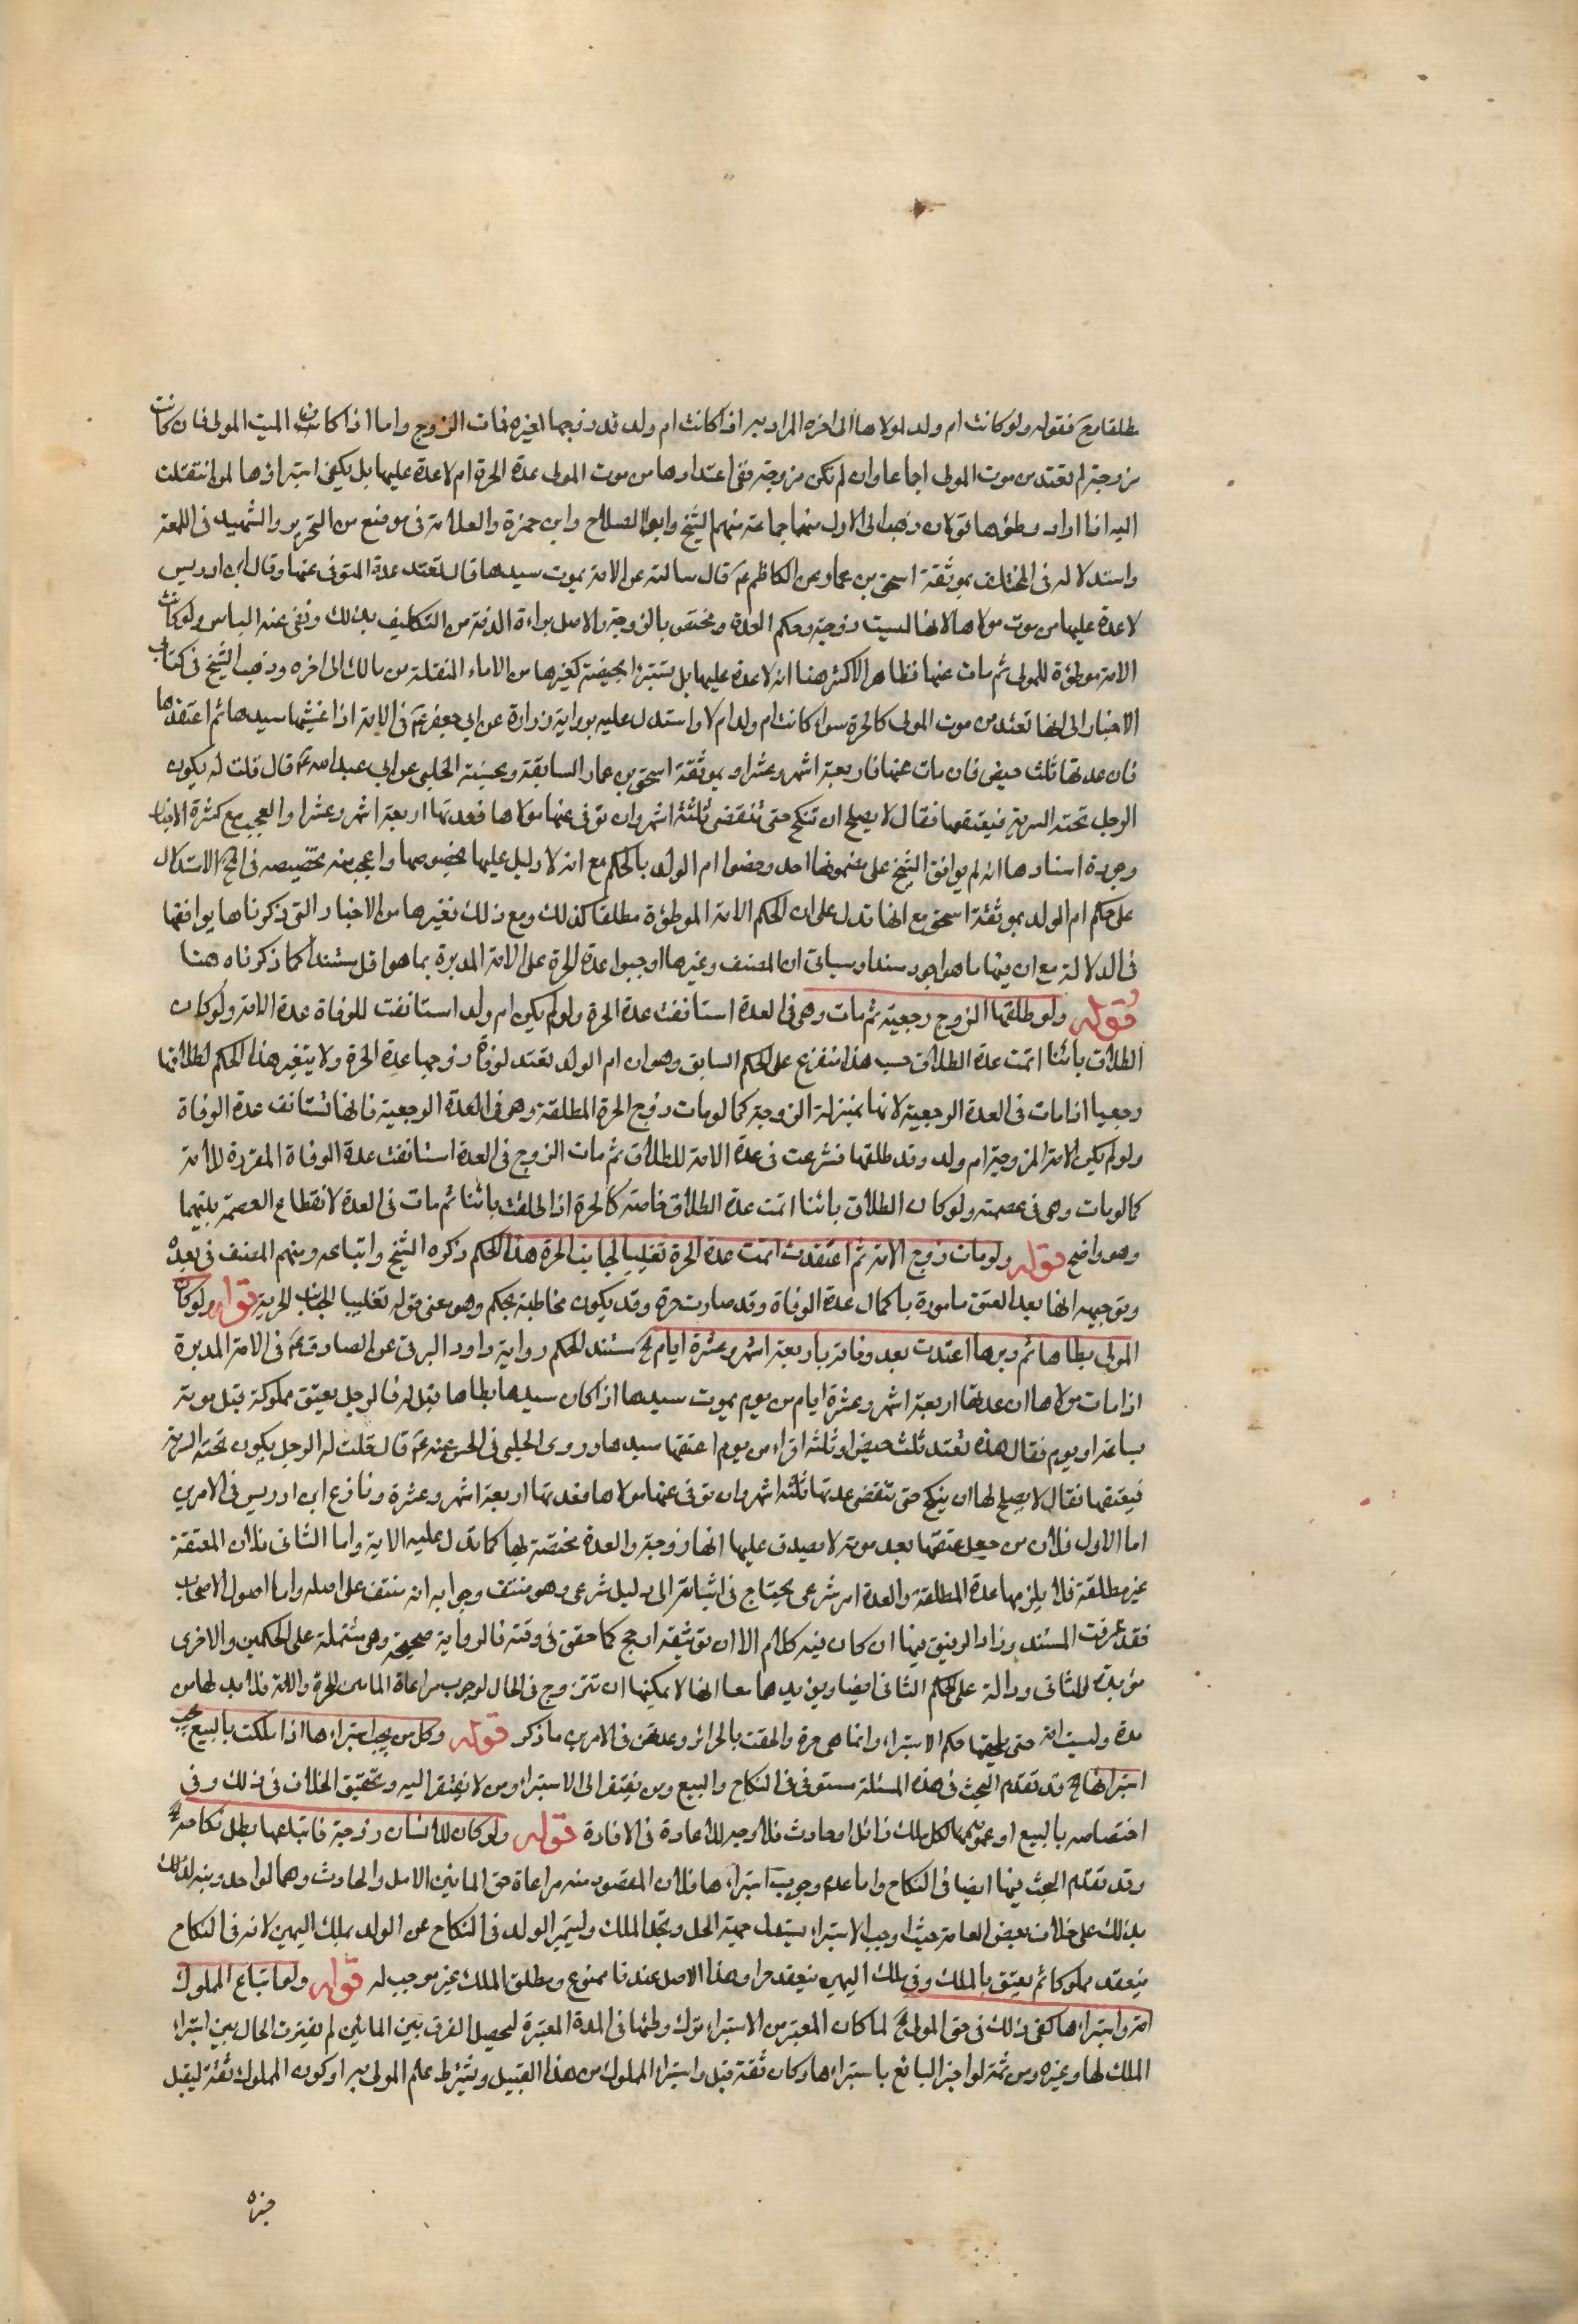 مطلقا وح فقوله ولو كانت ام ولد لمولاها الى اخره المراد به اذا كانت ام ولد قد زوجها لغيره فمات الزوج واما اذا كان الميت المولى فان كانت
مزوجة لم تعتد من موت المولى اجماعا وان لم تكن مزوجة ففي اعتدادها من موت المولى عدة الحرة ام لا عدة عليها بل يكفي استبراؤها لمن انتقلت
اليه اذا اراد وطؤها قولان ذهب الى الاول منهما جماعة منهم الشيخ وابو الصلاح وابن حمزة والعلامة في موضع من التحرير والشهيد في اللمعة
واستدلاله في المختلف بموثقة اسحق بن عمار عن الكاظم ع قال سالته عن الامة يموت سيدها قال تعتد عدة المتوفى عنها وقال ابن ادريس
لا عدة عليها من موت مولاها لانها ليست زوجة وحكم العدة مختص بالزوجة والاصل براءة الذمة من التكليف بذلك ونفى عنه الباس ولو كانت
الامة موطؤة للمولى ثم مات عنها فظاهر الاكثر هنا انه لا عدة عليها بل تستبرأ بحيضة كغيرها من الاماء المنتقلة من مالك الى اخره وذهب الشيخ في كتاب
الاخبار الى انها تعتد من موت المولى كالحرة سواء كانت ام ولد ام لا واستدل عليه برواية زرارة عن ابي جعفر ع في الامة اذا غشيها سيدها ثم اعتقها
فان عدتها ثلث حيض فان مات عنها فاربعة اشهر وعشرا وبموثقة اسحق بن عمار السابقة وبحسنة الحلبي عن ابي عبد الله ع قال قلت له يكون
الرجل تحته السرية فيعتقها فقال لا يصلح ان تنكح حتى تنقضي ثلثة اشهر وان توفي عنها مولاها فعدتها اربعة اشهر وعشرا والعجب مع كثرة الاخبار
وجودة اسنادها انه لم يوافق الشيخ على مضمونها احد وخصوا ام الولد بالحكم مع انه لا دليل عليها بخصوصها واعجب منه تخصيصه في المخ الاستدلال
على حكم ام الولد بموثقة اسحق مع انها تدل على ان الحكم الامة الموطؤة مطلقا كذلك ومع ذلك فغيرها من الاخبار التي ذكرناها يوافقها
في الدلالة مع ان فيها ما هو اجود سندا وسياتي ان المصنف وغيره اوجبوا عدة الحرة على الامة المدبرة بما هو اقل مستندا كما ذكرناه هنا
قوله ولو طلقها الزوج رجعية ثم مات وهي في العدة استانفت عدة الحرة ولو لم يكن ام ولد استانفت للوفاة عدة الامة ولو كان
الطلاق بائنا اتمت عدة الطلاق حسب هذا متفرع على الحكم السابق وهو ان ام الولد تعتد لوفاة زوجها عدة الحرة ولا يتغير هذا الحكم لطلاقها
رجعيا اذا مات في العدة الرجعية لانها بمنزلة الزوجة كما لو مات زوج الحرة المطلقة وهي في العدة الرجعية فانها تستانف عدة الوفاة
ولو لم يكن الامة المزوجة ام ولد وقد طلقها فشرعت في عدة الامة للطلاق ثم مات الزوج في العدة استانفت عدة الوفاة المقررة للامة
كما لو مات وهي في عصمته ولو كان الطلاق بائنا اتمت عدة الطلاق خاصة كالحرة اذا طلقت بائنا ثم مات في العدة لانقطاع العصمة بينهما
وهو واضح قوله ولو مات زوج الامة ثم اعتقت اتمت عدة الحرة تغليبا لجانب الحرة هذا الحكم ذكره الشيخ واتباعه ومنهم المصنف في بعده
وتوجيهه انها بعد العتق مامورة باكمال عدة الوفاة وقد صارت حرة وقد يكون مخاطبة بحكم وهو معنى قوله تغليبا لجانب الحرية قوله ولو كان
المولى يطاها ثم دبرها اعتدت بعد وفاته باربعة اشهر وعشرة ايام لخ مستند الحكم رواية داود الرقي عن الصادق ع في الامة المدبرة
اذا مات مولاها ان عدتها اربعة اشهر وعشرة ايام من يوم يموت سيدها اذا كان سيدها يطاها قيل له فالرجل يعتق مملوكته قبل موته
بساعة او يوم فقال هذه تعتد ثلث حيض او ثلثة اقراء من يوم اعتقها سيدها وروى الحلبي في الحسن عنه ع قال قلت له الرجل يكون تحته السرية
فيعتقها فقال لا يصلح لها ان ينكح حتى تنقضي عدتها ثلثة اشهر وان توفي عنها مولاها فعدتها اربعة اشهر وعشرة ونازع ابن ادريس في الامرين
اما الاول فلان من جعل عتقها بعد موته لا يصدق عليها انها زوجة والعدة مختصة بها كما تدل عليه الاية واما الثاني فلان المعتقة
غير مطلقة فلا يلزمها عدة المطلقة والعدة امر شرعي يحتاج في اثباته الى دليل شرعي وهو منتف وجوابه انه منتف على اصله واما اصول الاصحاب
فقد عرفت المستند وداود الرقي فيها ان كان فيه كلام الا ان توثيقه ارجح كما حقق في وقته فالرواية صحيحة وهي مشتملة على الحكمين والاخرى
مؤيدة للثاني ودالة على الحكم الثاني ايضا ويؤيدها معا انها لا يمكنها ان تتزوج في الحال لوجوب مراعاة المائين للحرة والامة فلا بد لها من
مدة وليست امة حتى يلحقها حكم الاستبراء وانما هي حرة والحقت بالحرائر وعدتهن في الامرين ما ذكر قوله وكل من يجب استبراءها اذا ملكت بالبيع يجب
استبراءها لخ قد تقدم البحث في هذه المسئلة مستوفى في النكاح والبيع ومن يفتقر الى الاستبراء ومن لا يفتقر اليه وتحقيق الخلاف في ذلك وفي
اختصاصه بالبيع او عمومها لكل ملك زائل او حادث فلا وجه للاعادة في الافادة قوله ولو كان للانسان زوجة فابتاعها بطل نكاحه لخ
وقد تقدم البحث فيها ايضا في النكاح واما عدم وجوب استبراءها فلان المقصود منه مراعاة حق المائين الاصل والحادث وهما لواحد ونبه
بذلك على خلاف بعض العامة حيث اوجب الاستبراء ليتبدل جهة الحل وتجدد الملك وليتميز الولد في النكاح عن الولد بملك اليمين لانه في النكاح
ينعقد مملوكا ثم يعتق بالملك وفي ملك اليمين ينعقد حرا وهذا الاصل عندنا ممنوع ومطلق الملك غير موجب له قوله ولو ابتاع المملوك
امة واستبراءها كفى ذلك في حق المولى لخ لما كان المعتبر من الاستبراء ترك وطئها في المدة المعتبرة ليحصل الفرق بين المائين لم يفترق الحال بين استبراء
الملك لها وغيره ومن ثمة لو اخبر البائع باستبراءها وكان ثقة قبل واستبراء المملوك من هذا القبيل ويشترط علم المولى به او كون المملوك ثقة ليقبل
خبره